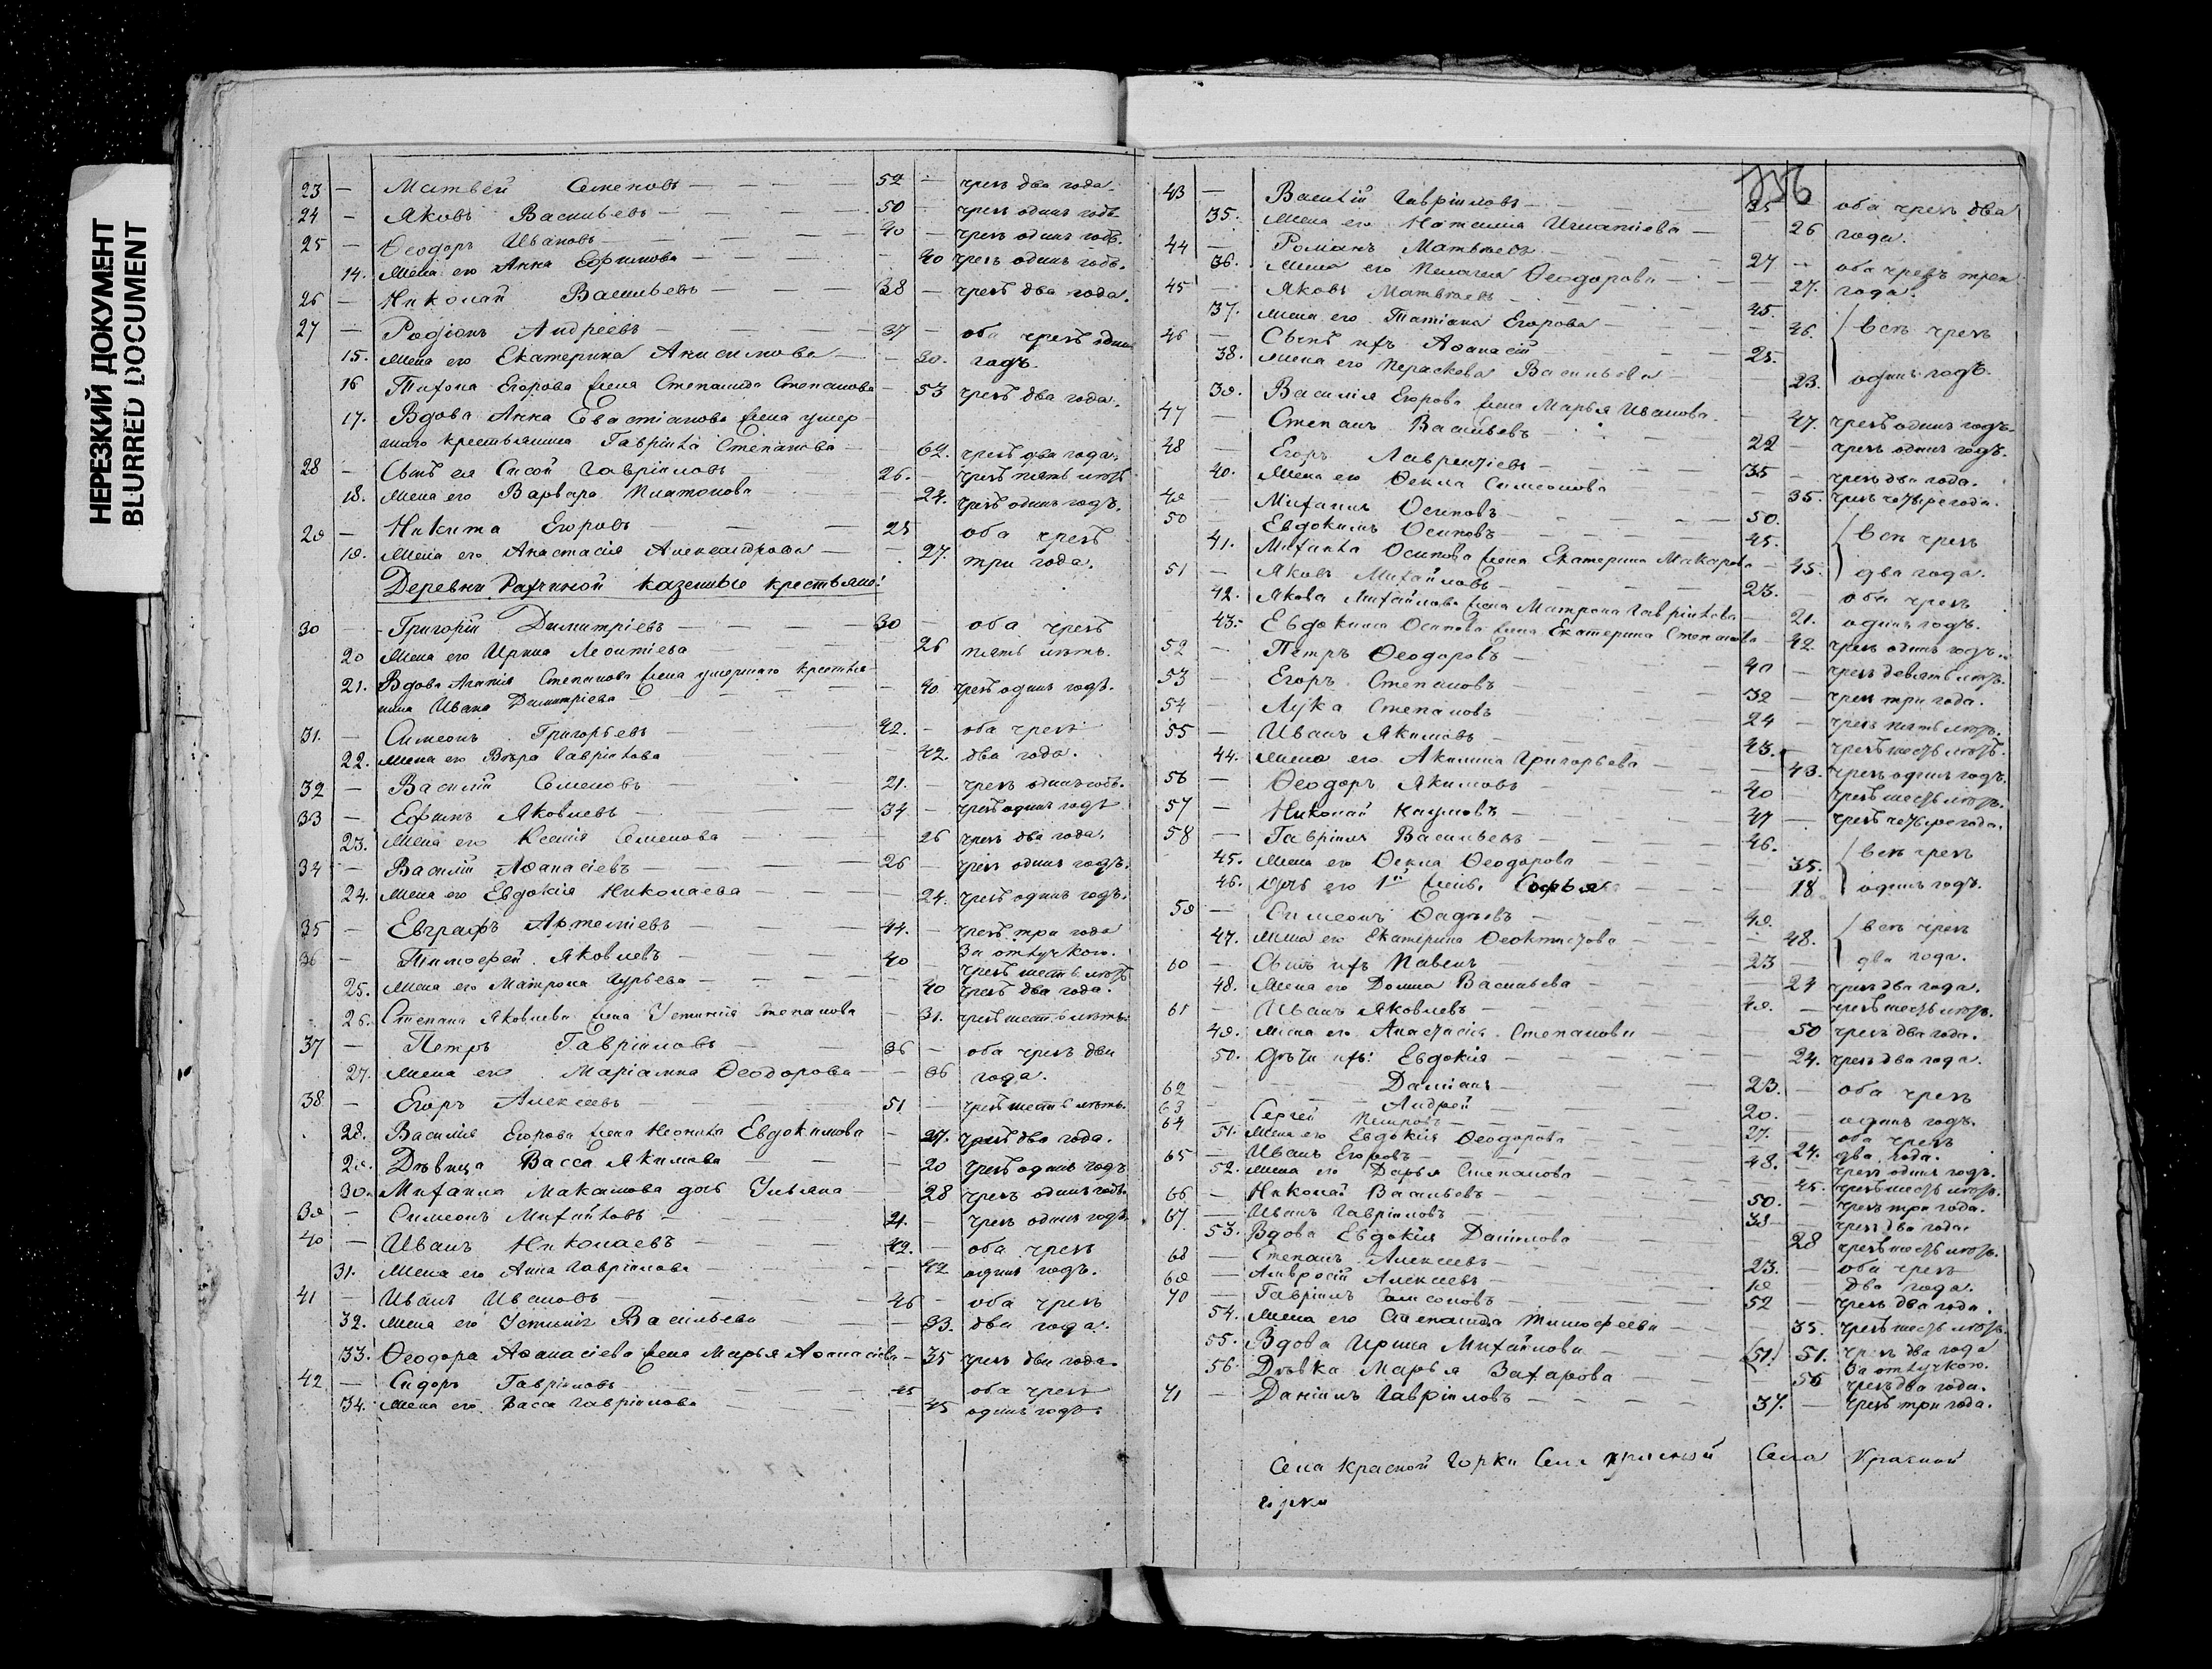 НЕРЕЗКИЙ ДОКУМЕНТ
BLURRED DOCUMENT
23 — Матвей Семеновъ — 52 — чрезъ два года.
24 — Яковъ Васильевъ — 50 чрезъ одинъ годъ
25 — Ѳеодоръ Ивановъ — 40 — чрезъ одинъ годъ.
14. Жена его Анна Ефимова — 40 чрезъ одинъ годъ.
26 — Николай Васильевъ — 38 — чрезъ два года.
27 — Родіонъ Андреевъ — 37 — оба чрезъ одинъ
15. Жена его Екатерина Анисимова — 30. годъ.
16 Тихона Егорова жена Степанида Степанова — 53 чрезъ два года.
17. Вдова Анна Евастіанова жена умер
шаго крестьянина Гавріила Степанова — 62. чрезъ два года.
28 — Сынъ ея Сисой Гавріиловъ 26. — чрезъ пять лѣтъ
18. Жена его Варвара Платонова — 24. чрезъ одинъ годъ.
29 — Никита Егоровъ — 25 оба чрезъ
19. Жена его Анастасія Александрова — 27. три года.
Деревни Рахиной казенные крестьяне:
30 — Григорій Димитріевъ — 30 — оба чрезъ
20 Жена его Ирина Леонтіева — 26 пять лѣтъ.
21. Вдова Агапія Степанова жена умершаго крестья
нина Ивана Димитріева — 40. чрезъ одинъ годъ.
31. — Симеонъ Григорьевъ — 42. — оба чрезъ
22. Жена его Вѣра Гавріилова — 42. два года.
32 — Василій Семеновъ — 21. — чрезъ одинъ годъ.
33 — Ефимъ Яковлевъ — 34 — чрезъ одинъ годъ
23. Жена его Ксенія Семенова — 26 чрезъ два года.
34 — Василій Аѳанасіевъ — 26 — чрезъ одинъ годъ.
24. Жена его Евдокія Николаева — 24. чрезъ одинъ годъ.
35 — Евграфъ Артеміевъ — 44. — чрезъ три года
36 — Тимоѳей Яковлевъ — 40 За отлучкою.
чрезъ шесть лѣтъ
25. Жена его Матрона Гурьева — 40 чрезъ два года.
26. Степана Яковлева жена Устинія Степанова — 31. чрезъ шесть лѣтъ.
37 — Петръ Гавріиловъ — 36 — оба чрезъ два
27. Жена его Маріамна Ѳеодорова — 36 года.
38 — Егоръ Алексеевъ — 51 — чрезъ шесть лѣтъ.
28. Василія Егорова жена Неонила Евдокимова — 27. чрезъ два года.
29. Дѣвица Васса Якимова — 20 чрезъ одинъ годъ
30. Михаила Макашова дочь Ульяна — 28 чрезъ одинъ годъ.
39 — Симеонъ Михайловъ — 21. — чрезъ одинъ годъ.
40 — Иванъ Николаевъ — 42. — оба чрезъ
31. Жена его Анна Гавріилова — 42 одинъ годъ.
41 — Иванъ Ивановъ — 46 — оба чрезъ
32. Жена его Устинія Васильева — 33. два года.
33. Ѳеодора Аѳанасіева жена Марья Аѳанасіева — 35 чрезъ два года.
42 — Сидоръ Гавріиловъ — 45 оба чрезъ
34. Жена его Васса Гавріилова — 45 одинъ годъ.
43 — Василій Гавріиловъ — 25 оба чрезъ два
35. Жена его Наталия Игнатіева — 26 года.
44 — Романъ Матвѣевъ — 27 — оба чрезъ три
36. Жена его Пелагея Ѳеодорова — 27. года.
45 — Яковъ Матвѣевъ — 45.
37. Жена его Татіана Егорова — 46. всѣ чрезъ
46 — Сынъ ихъ Аѳанасій — 25.
38. Жена его Параскева Васильева — 23. одинъ годъ.
39. Василія Егорова жена Марья Иванова — 47. чрезъ одинъ годъ.
47 — Степанъ Васильевъ — 22 чрезъ одинъ годъ.
48 — Егоръ Лаврентіевъ — 35 — чрезъ два года.
40. Жена его Ѳекла Симеонова — 35. чрезъ четыре года.
49 Михаилъ Осиповъ — 50.
50 Евдокимъ Осиповъ — 45. всѣ чрезъ
41. Михаила Осипова жена Екатерина Макарова — 45. два года.
51 — Яковъ Михайловъ — 23. оба чрезъ
42. Якова Михайлова жена Матрона Гавріилова — 21. одинъ годъ.
43. Евдокима Осипова жена Екатерина Степанова — 42. чрезъ одинъ годъ.
52 — Петръ Ѳеодоровъ — 40 — чрезъ девять лѣтъ.
53 — Егоръ Степановъ — 32 — чрезъ три года.
54 — Лука Степановъ — 24 — чрезъ пять лѣтъ.
55 — Иванъ Якимовъ — 43. — чрезъ шесть лѣтъ.
44. Жена его Акилина Григорьева — 43. чрезъ одинъ годъ.
56 — Ѳеодоръ Якимовъ — 40 — чрезъ шесть лѣтъ.
57 — Николай Наумовъ — 47 — чрезъ четыре года.
58 — Гавріилъ Васильевъ — 46. всѣ чрезъ
45. Жена его Ѳекла Ѳеодорова — 35.
46. дочь его 1й жены Софья — 18 одинъ годъ.
59 — Симеонъ Ѳадѣевъ — 49. всѣ чрезъ
47. Жена его Екатерина Ѳеоктистова — 48.
60 — Сынъ ихъ Павелъ — 23 — два года.
48. Жена его Домна Васильева — 24 чрезъ два года.
61 — Иванъ Яковлевъ — 49. — чрезъ шесть лѣтъ.
49. Жена его Анастасія Степанова — 50 чрезъ два года.
50. Дѣти ихъ: Евдокія — 24. чрезъ два года.
62 — Даміанъ — 23. — оба чрезъ
63 — Андрей — 20. — одинъ годъ.
64 Сергей Петровъ — 27. оба чрезъ
51. Жена его Евдокія Ѳеодорова — 24. два года.
65 — Иванъ Егоровъ — 48. — чрезъ одинъ годъ.
52. Жена его Дарья Степанова — 45. чрезъ шесть лѣтъ.
66 — Николай Васильевъ — 50. — чрезъ три года.
67. — Иванъ Гавріиловъ — 39 — чрезъ два года.
53. Вдова Евдокія Даниилова — 28 чрезъ шесть лѣтъ.
68 — Степанъ Алексеевъ — 23. — оба чрезъ
69 — Амвросій Алексеевъ — 19 два года.
70 — Гавріилъ Самсоновъ — 52 — чрезъ два года.
54. Жена его Степанида Тимоѳеева — 35. чрезъ шесть лѣтъ.
55. Вдова Ирина Михайлова — (51.) 51. чрезъ два года
56. Дѣвка Марья Захарова — 56 За отлучкою.
чрезъ два года.
71 — Даніилъ Гавріиловъ — 37. — чрезъ три года.
Села Красной Горки Села Красной Села Красной
горки